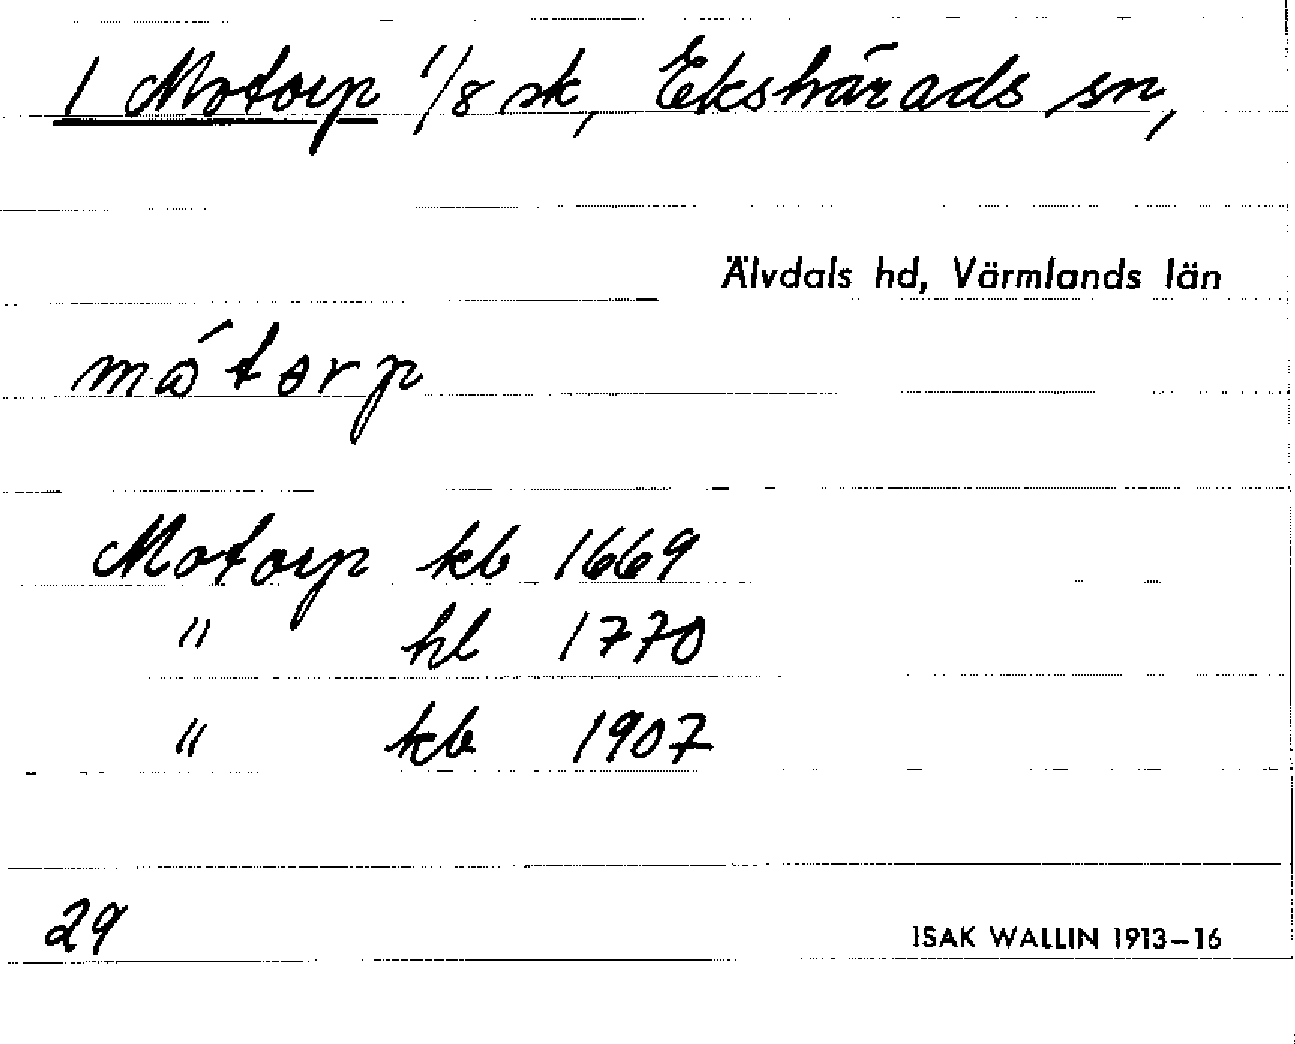 1 Motorp 1/8 sk, Ekshärads sn,
Älvdals hd, Värmlands län
mótorp
Motorp kb 1669
" hl 1770
" kb 1907
29
ISAK WALLIN 1913–16